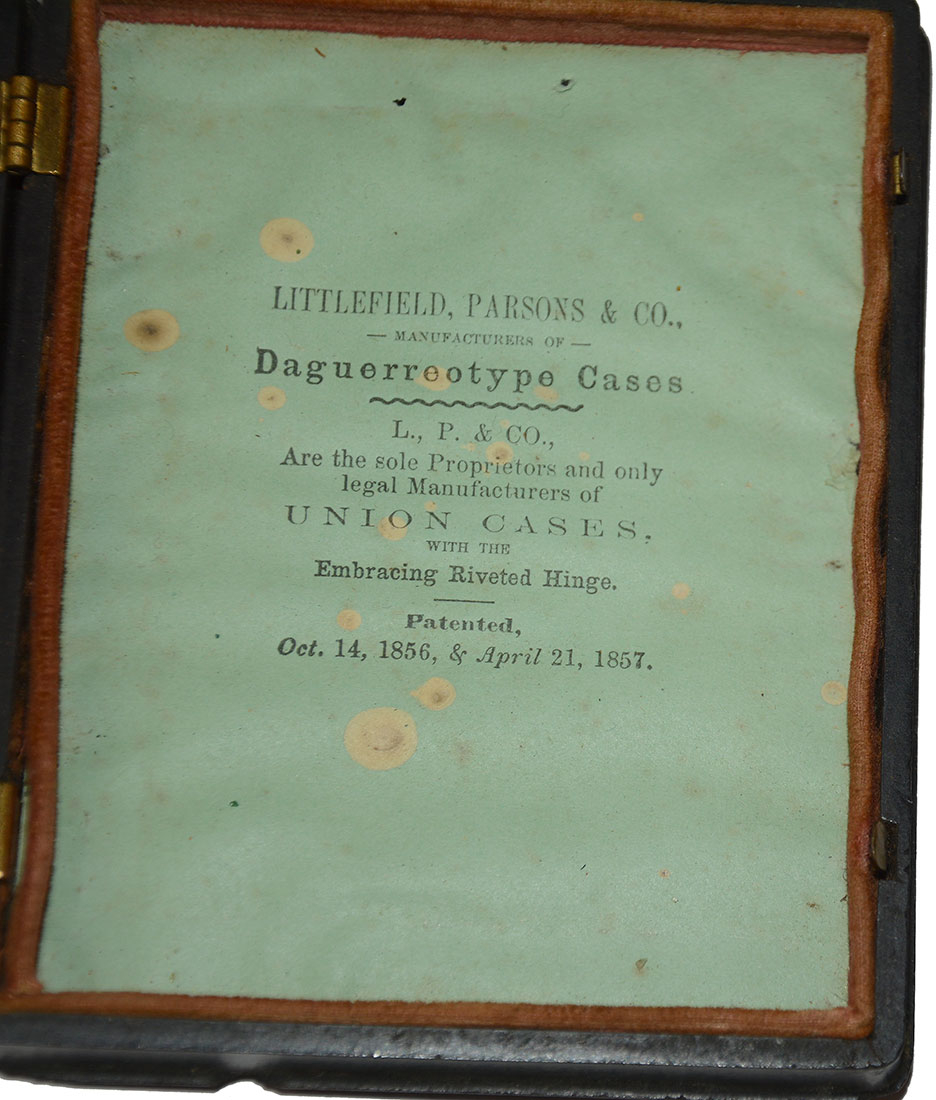 LITTLEFIELD, PARSONS & CO.,
— MANUFACTURERS OF —
Daguerreotype Cases.
L., P. & CO.,
Are the sole Proprietors and only
legal Manufacturers of
UNION CASES,
WITH THE
Embracing Riveted Hinge.
Patented,
Oct. 14, 1856, & April 21, 1857.